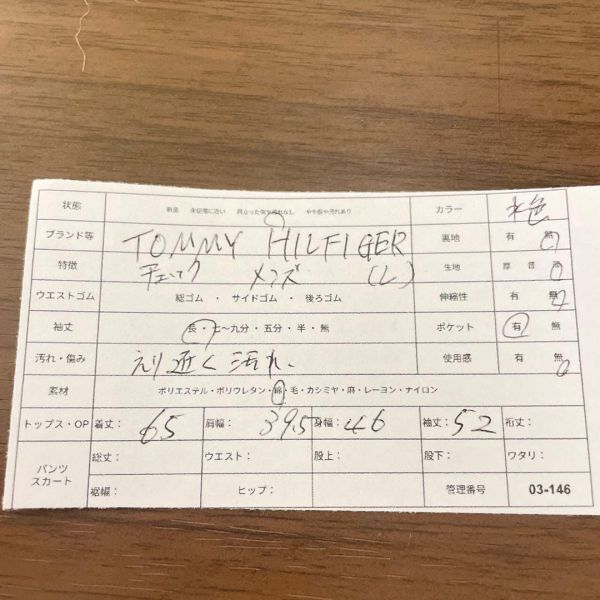 状態 新品 未使用に近い 目立った傷や汚れなし やや傷や汚れあり カラー 水色
ブランド等 TOMMY HILFIGER 裏地 有 無
特徴 チェック メンズ (L) 生地 厚 普 薄
ウエストゴム 総ゴム ・ サイドゴム ・ 後ろゴム 伸縮性 有 無
袖丈 長・七〜九分・五分・半・無 ポケット 有 無
汚れ・傷み えり近く汚れ、 使用感 有 無
素材 ポリエステル・ポリウレタン・綿・毛・カシミヤ・麻・レーヨン・ナイロン
トップス・OP 着丈： 65 肩幅： 39.5 身幅： 46 袖丈： 52 裄丈：
パンツ スカート 総丈： ウエスト： 股上： 股下： ワタリ：
裾幅： ヒップ： 管理番号 03-146